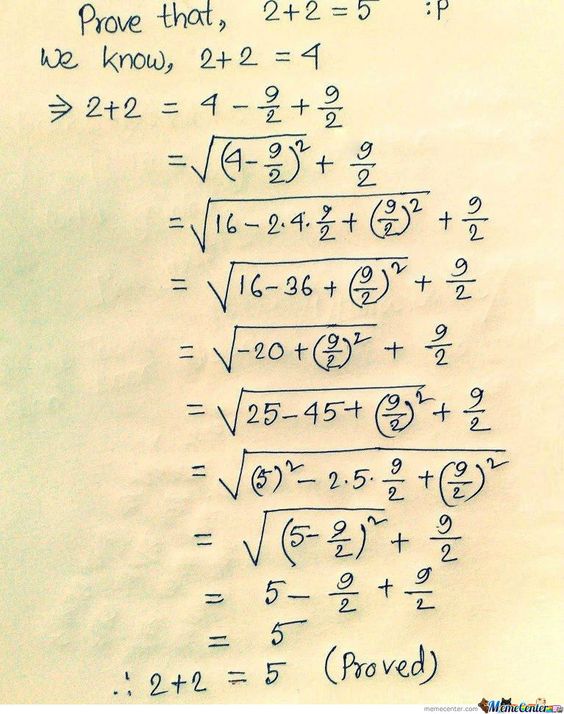 Prove that, 2+2 = 5 :P
We know, 2+2 = 4
⇒ 2+2 = 4 - 9/2 + 9/2
= √(4-9/2)² + 9/2
= √16-2·4·9/2+(9/2)² + 9/2
= √16-36+(9/2)² + 9/2
= √-20+(9/2)² + 9/2
= √25-45+(9/2)² + 9/2
= √(5)²-2·5·9/2+(9/2)²
= √(5-9/2)² + 9/2
= 5 - 9/2 + 9/2
= 5
∴ 2+2 = 5 (Proved)
memecenter.com MemeCenter